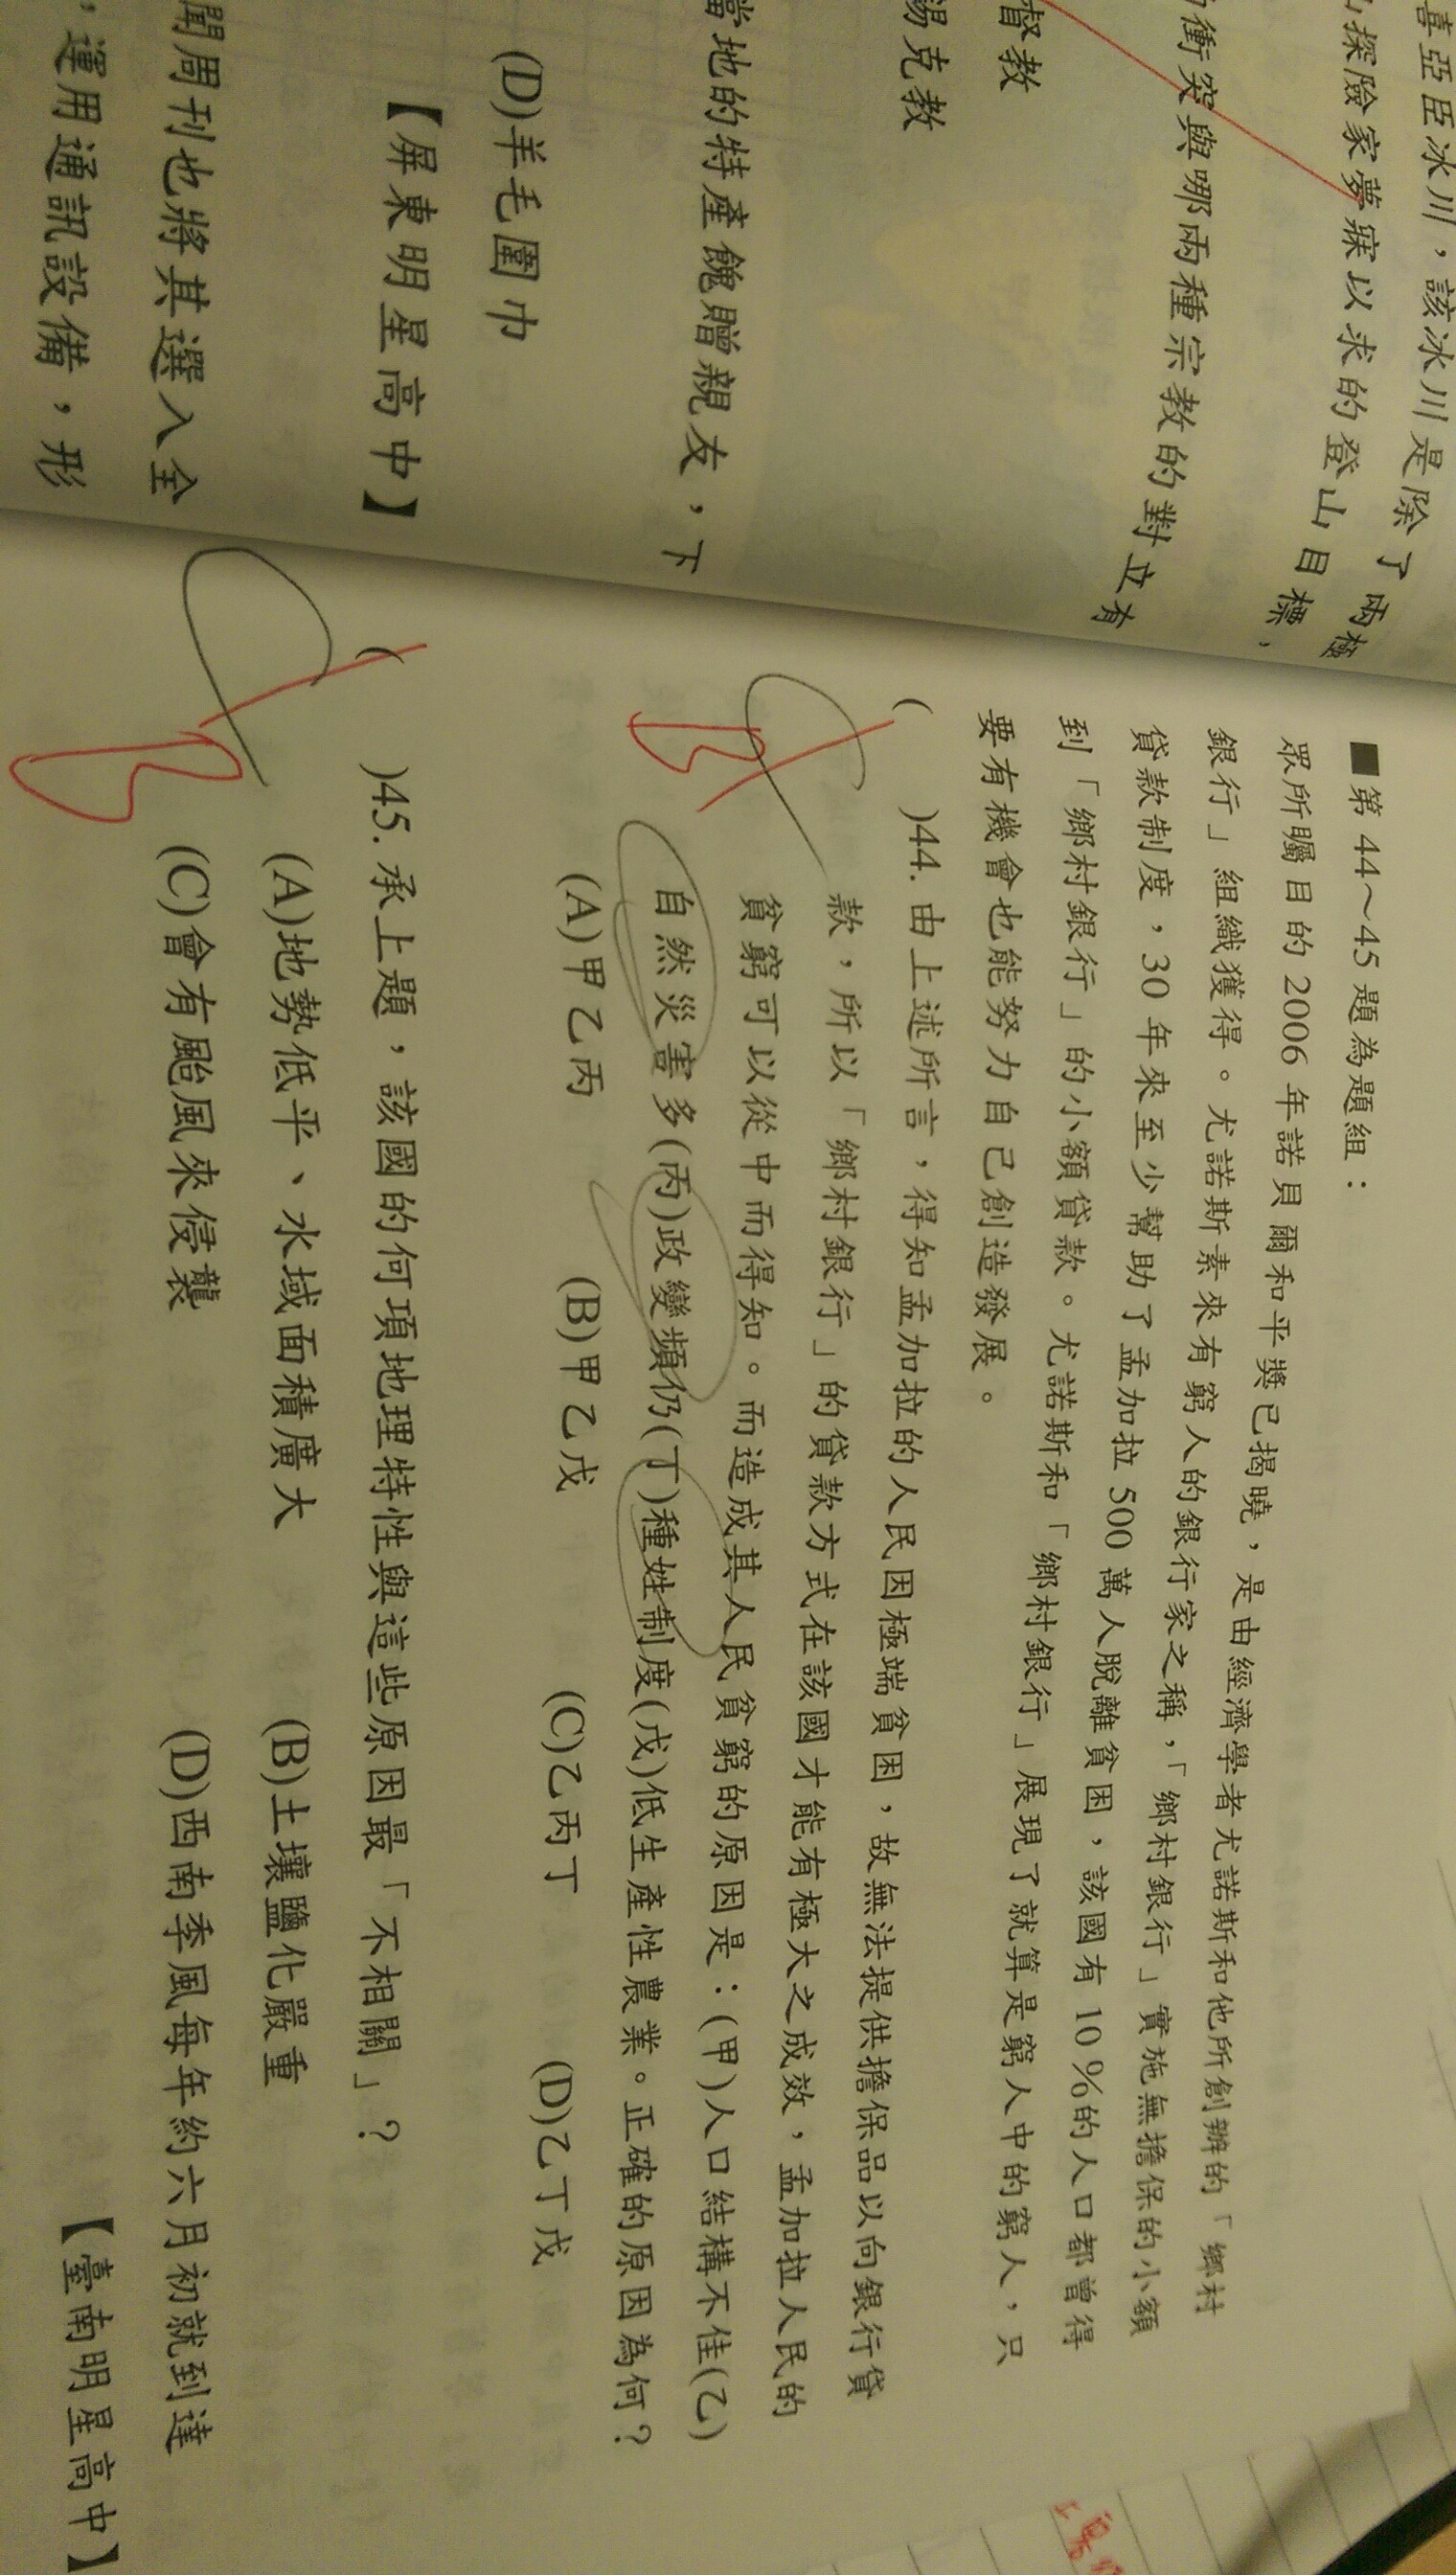 喜亞臣冰川，該冰川是除了兩極
探險家夢寐以求的登山目標，
衝突與哪兩種宗教的對立有
督教
錫克教
當地的特產餽贈親友，下
(D)羊毛圍巾
【屏東明星高中】
聞周刊也將其選入全
，運用通訊設備，形
■第 44～45 題為題組：
眾所矚目的 2006 年諾貝爾和平獎已揭曉，是由經濟學者尤諾斯和他所創辦的「鄉村
銀行」組織獲得。尤諾斯素來有窮人的銀行家之稱，「鄉村銀行」實施無擔保的小額
貸款制度，30 年來至少幫助了孟加拉 500 萬人脫離貧困，該國有 10 %的人口都曾得
到「鄉村銀行」的小額貸款。尤諾斯和「鄉村銀行」展現了就算是窮人中的窮人，只
要有機會也能努力自己創造發展。
( )44. 由上述所言，得知孟加拉的人民因極端貧困，故無法提供擔保品以向銀行貸
款，所以「鄉村銀行」的貸款方式在該國才能有極大之成效，孟加拉人民的
貧窮可以從中而得知。而造成其人民貧窮的原因是：(甲)人口結構不佳(乙)
自然災害多(丙)政變頻仍(丁)種姓制度(戊)低生產性農業。正確的原因為何？
(A)甲乙丙 (B)甲乙戊 (C)乙丙丁 (D)乙丁戊
( )45. 承上題，該國的何項地理特性與這些原因最「不相關」？
(A)地勢低平、水域面積廣大 (B)土壤鹽化嚴重
(C)會有颱風來侵襲 (D)西南季風每年約六月初就到達
【臺南明星高中】
B
B